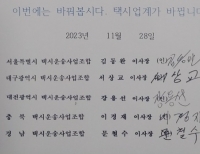 이번에는 바꿔봅시다. 택시업계가 바뀝니다
2023년 11월 28일
서울특별시 택시운송사업조합 김동완 이사장
대구광역시 택시운송사업조합 서상교 이사장 서상교
대전광역시 택시운송사업조합 강용선 이사장
충북 택시운송사업조합 이정재 이사장
경남 택시운송사업조합 문철수 이사장